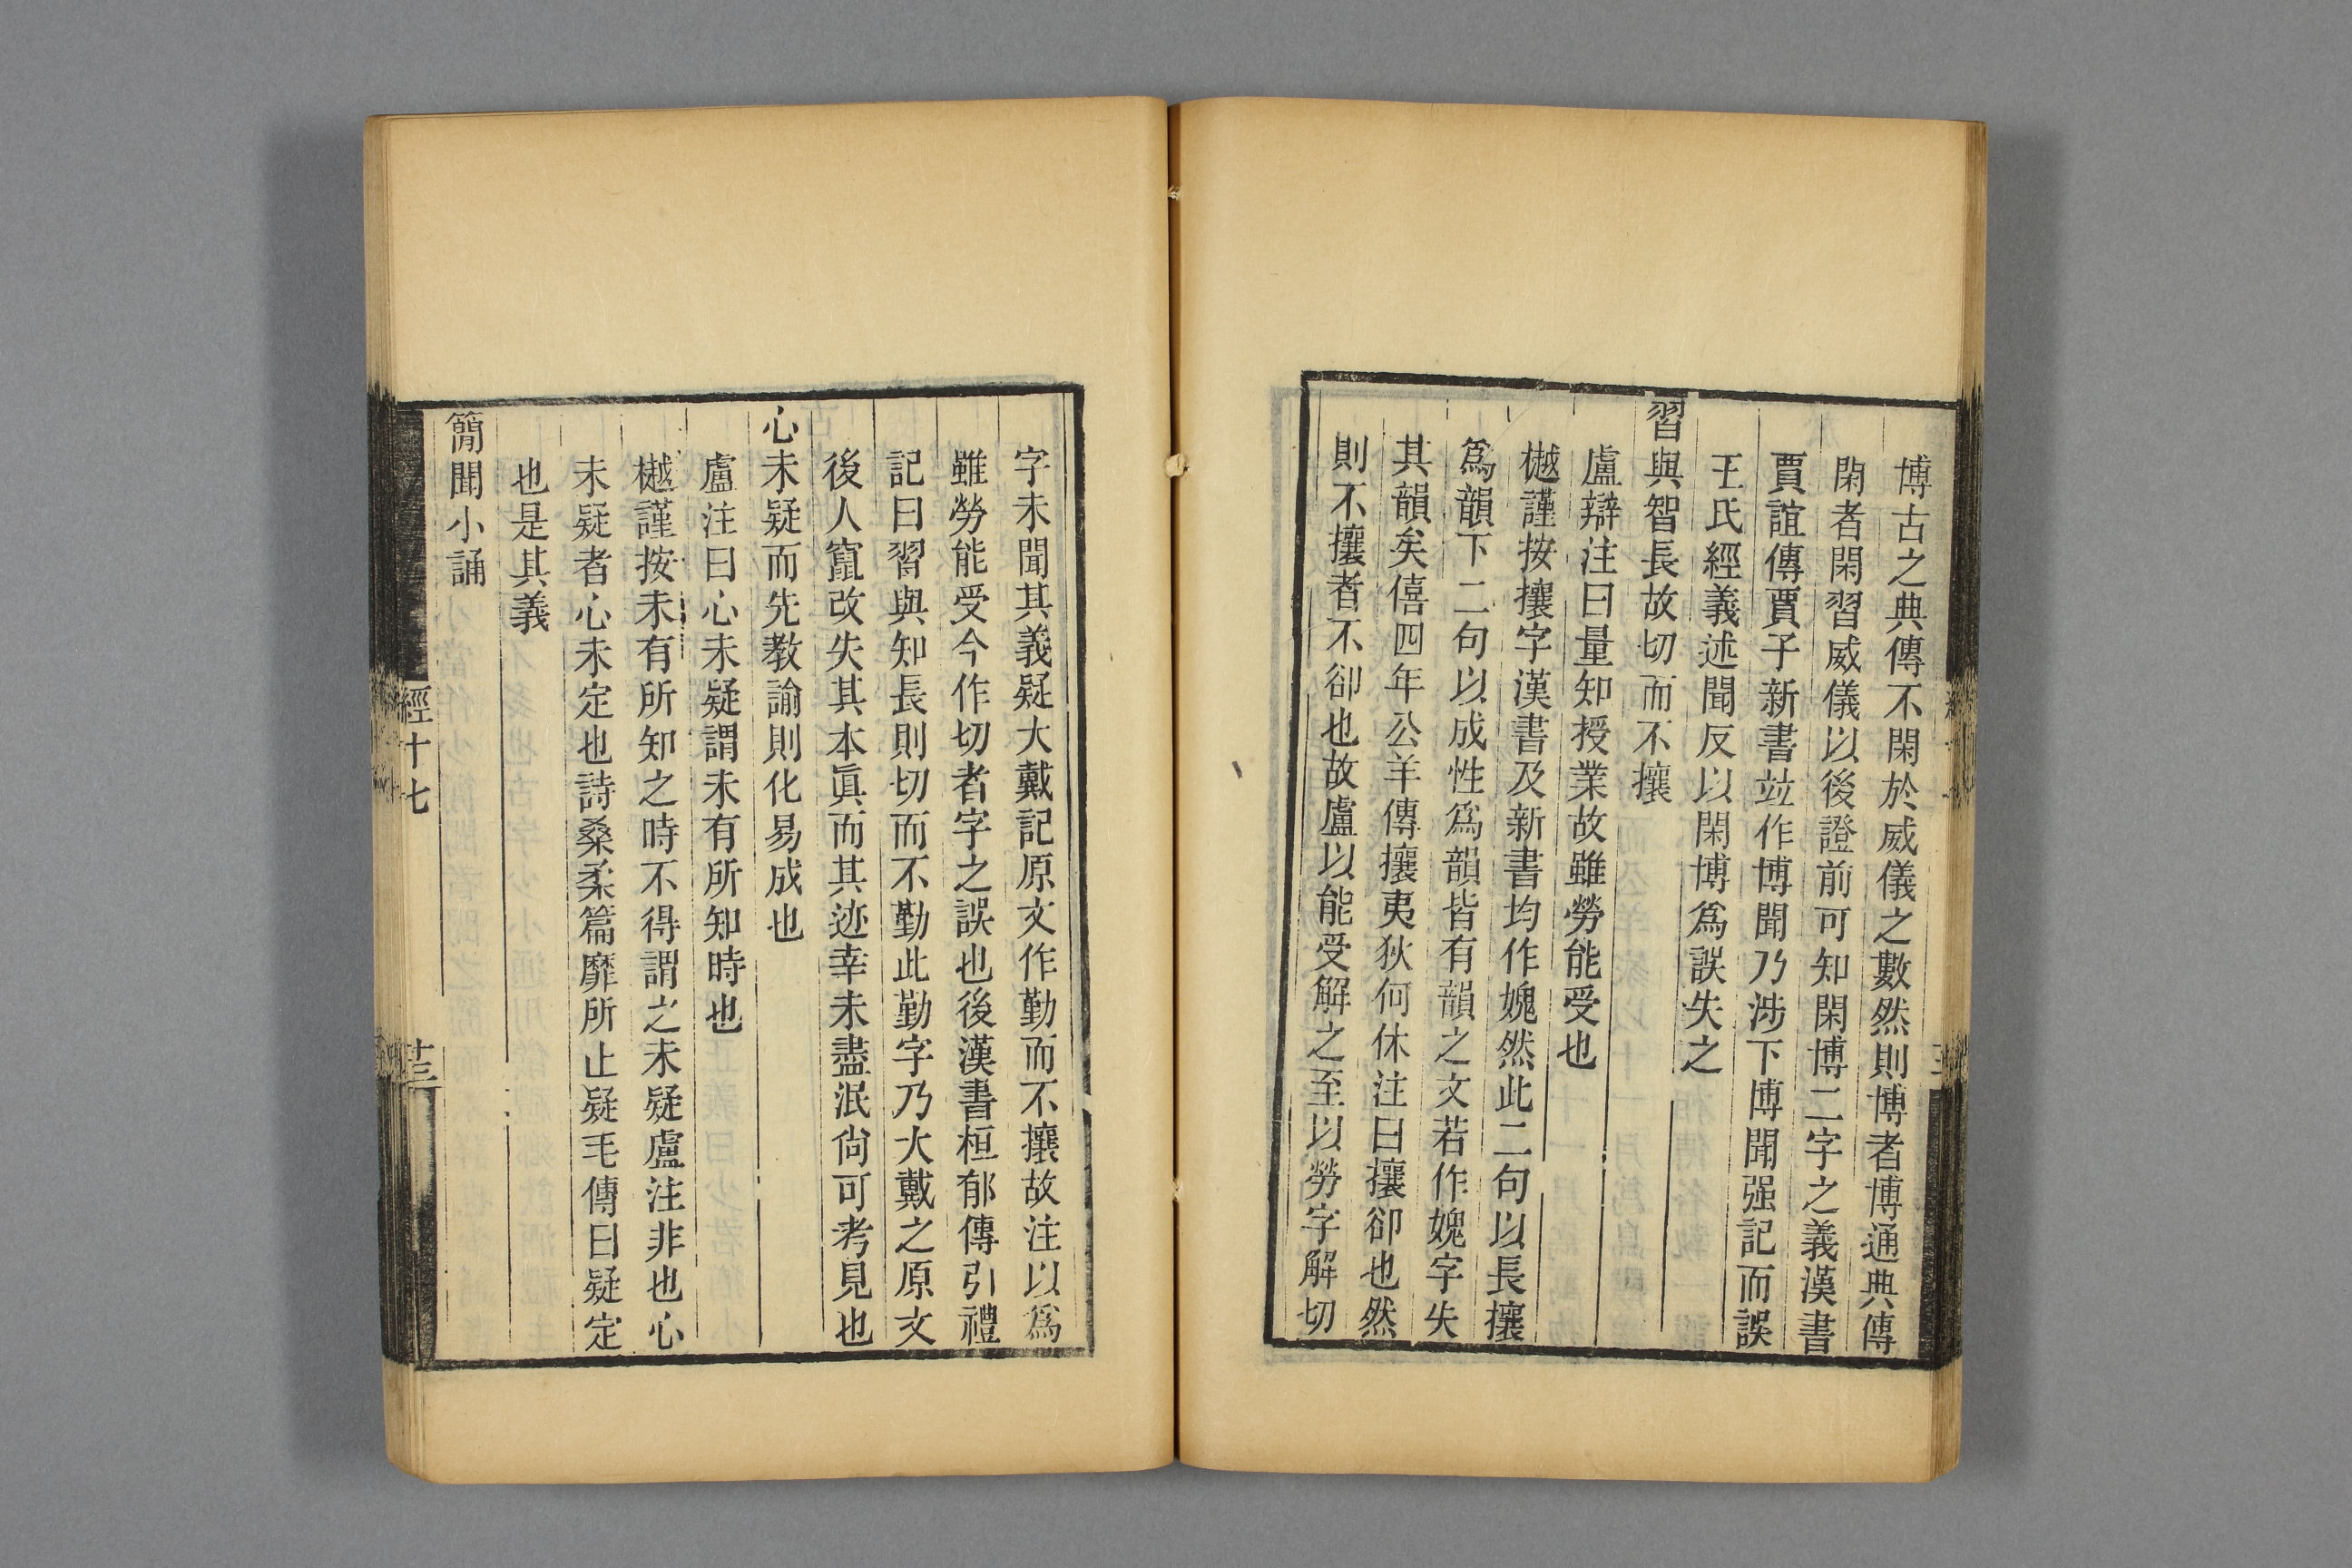 博古之典傳不閑於威儀之數然則博者博通典傳
閑者閑習威儀以後證前可知閑博二字之義漢書
賈誼傳賈子新書竝作博聞乃涉下博聞强記而誤
王氏經義述聞反以閑博爲誤失之
習與智長故切而不攘
盧辯注曰量知授業故雖勞能受也
樾謹按攘字漢書及新書均作媿然此二句以長攘
爲韻下二句以成性爲韻皆有韻之文若作媿字失
其韻矣僖四年公羊傳攘夷狄何休注曰攘卻也然
則不攘者不卻也故盧以能受解之至以勞字解切
字未聞其義疑大戴記原文作勤而不攘故注以爲
雖勞能受今作切者字之誤也後漢書桓郁傳引禮
記曰習與知長則切而不勤此勤字乃大戴之原文
後人竄改失其本眞而其迹幸未盡泯尙可考見也
心未疑而先教諭則化易成也
盧注曰心未疑謂未有所知時也
樾謹按未有所知之時不得謂之未疑盧注非也心
未疑者心未定也詩桑柔篇靡所止疑毛傳曰疑定
也是其義
簡聞小誦
經十七
十三